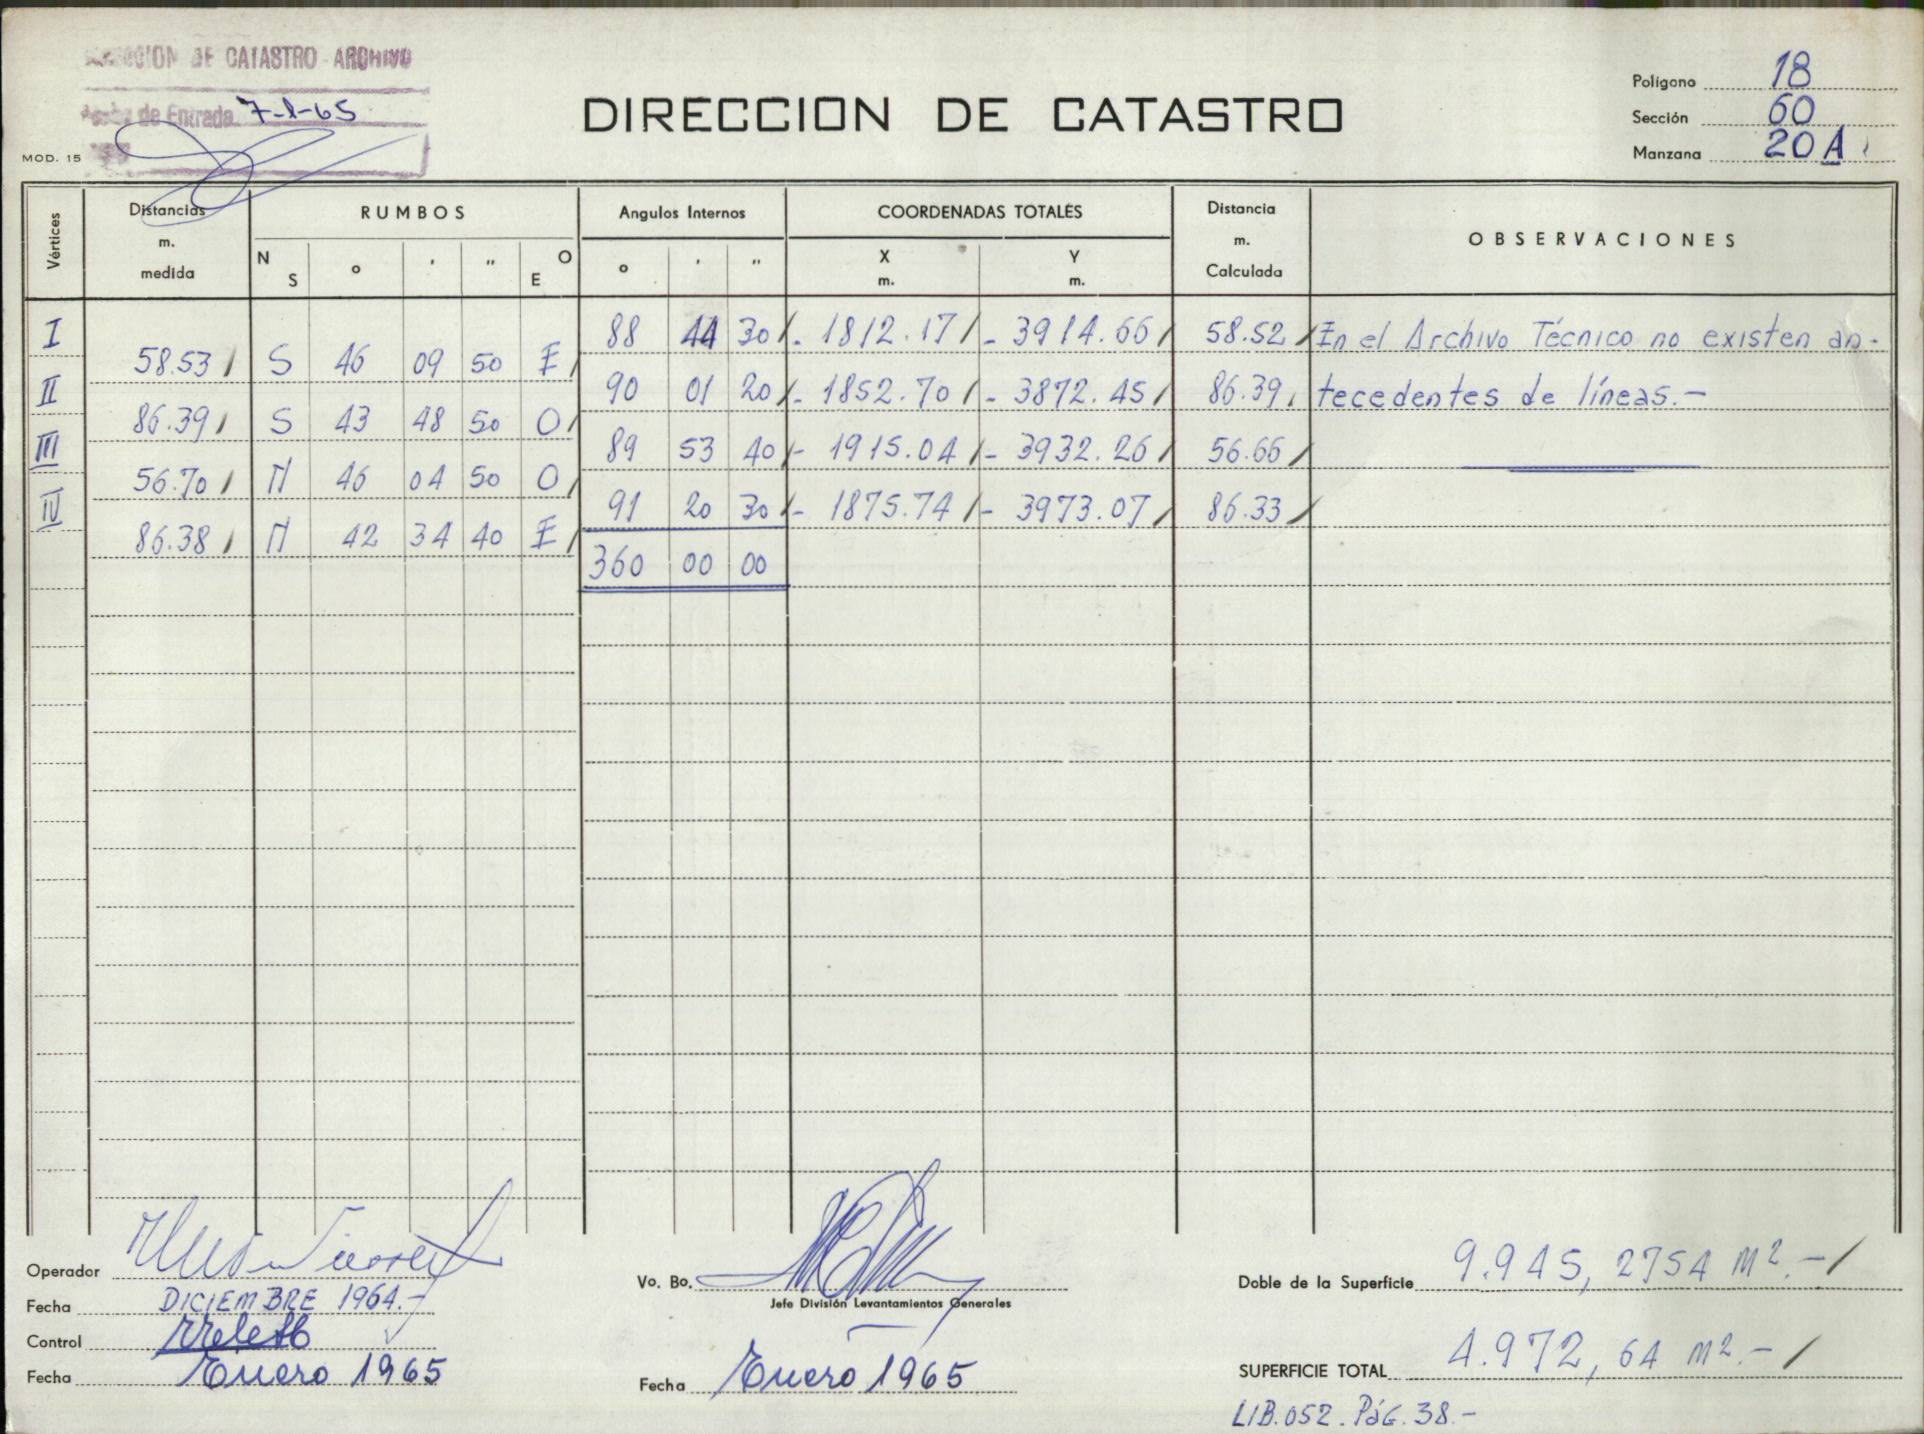 DE CATASTRO ARCHIVO
de Entrada 7-1-65
MOD. 15
DIRECCION DE CATASTRO
Polígono 18
Sección 60
Manzana 20 A
Vértices
Distancias m. medida
RUMBOS
N S ° ' " O E
Angulos Internos
° ' "
COORDENADAS TOTALES
X m. Y m.
Distancia m. Calculada
OBSERVACIONES
I 88 44 30 - 1812.17 - 3914.66 58.52 En el Archivo Técnico no existen an-
58.53 S 46 09 50 E
II 90 01 20 - 1852.70 - 3872.45 86.39 tecedentes de líneas.-
86.39 S 43 48 50 O
III 89 53 40 - 1915.04 - 3932.26 56.66
56.70 N 46 04 50 O
IV 91 20 30 - 1875.74 - 3973.07 86.33
86.38 N 42 34 40 E
360 00 00
Operador
Fecha DICIEMBRE 1964.-
Control
Fecha Enero 1965
Vo. Bo.
Jefe División Levantamientos Generales
Fecha Enero 1965
Doble de la Superficie 9.945,2754 M2.-
SUPERFICIE TOTAL 4.972,64 M2.-
LIB.052. Pág. 38.-